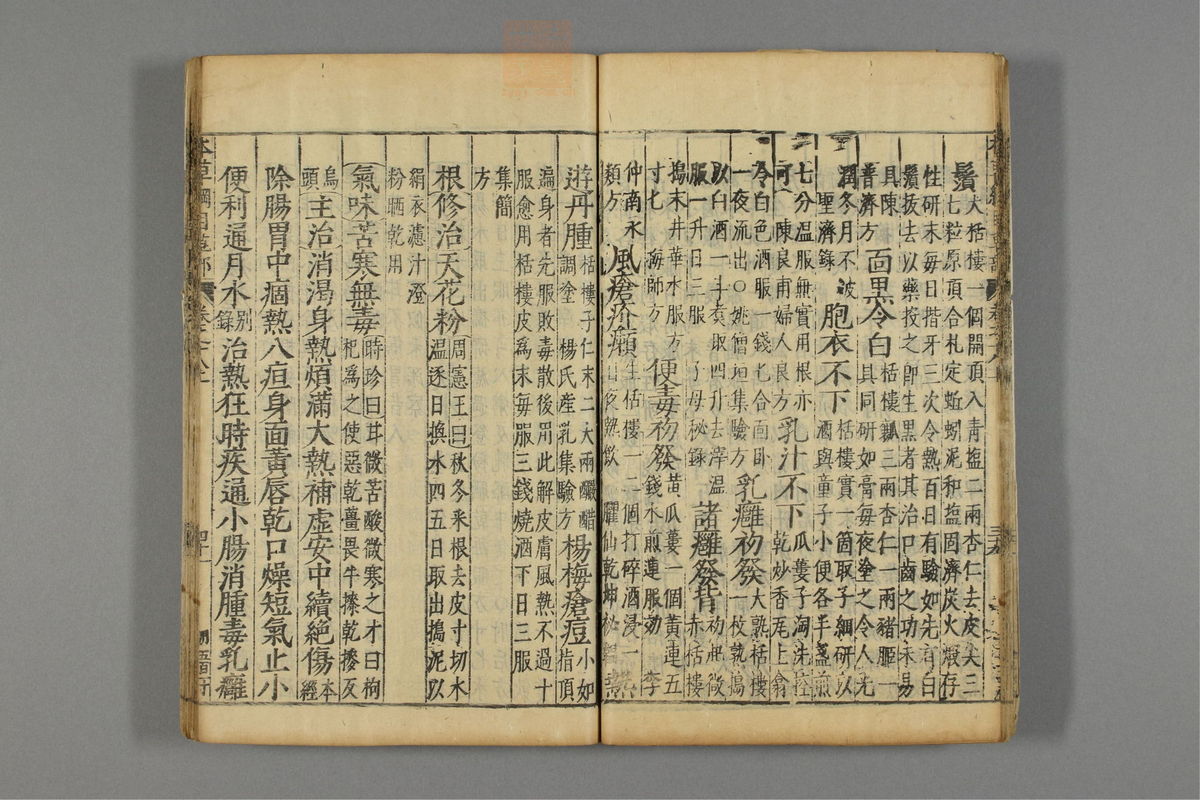 鬚大栝樓一個開頂入青塩二兩杏仁去皮尖三
七粒原頂合札定蚯蚓泥和塩固濟炭火煆存
性研末每日揩牙三次令熱百日有驗如先有白
鬚拔去以藥按之即生黑者其治口齒之功未易
具陳
普濟方
面黑令白
栝樓瓤三兩杏仁一兩豬胵一
具同研如膏每夜塗之令人光
潤冬月不皴
聖濟錄
胞衣不下
栝樓實一箇取子細研以
酒與童子小便各半盞煎
七分溫服無實用根亦
可陳良甫婦人良方
乳汁不下
瓜蔞子淘洗控
乾炒香瓦上翕
冷白色酒服一錢匕合面卧
一夜流出○姚僧垣集驗方
乳癰初發
大熟栝樓
一枚熟搗
以白酒一斗煮取四升去滓溫
服一升日三服 子母秘錄
諸癰發背
初起微
赤栝樓
搗末井華水服方
寸匕 梅師方
便毒初發
黃瓜蔞一個黃連五
錢水煎連服効 李
仲南永
類方
風瘡疥癩
生栝樓一二個打碎酒浸一
日夜熱飲 臞仙乾坤秘韞
遊丹腫
栝樓子仁末二大兩釅醋
調塗 楊氏産乳集驗方
楊梅瘡痘
小如
指頂
遍身者先服敗毒散後用此解皮膚風熱不過十
服愈用栝樓皮爲末每服三錢燒酒下日三服
集簡
方
根修治天花粉
周憲王曰秋冬采根去皮寸切水
溫逐日換水四五日取出搗泥以
絹衣濾汁澄
粉晒乾用
氣味苦寒無毒
時珍曰甘微苦酸微寒之才曰枸
杞爲之使惡乾薑畏牛膝乾膝反
烏
頭
主治消渴身熱煩滿大熱補虛安中續絕傷
本
經
除腸胃中痼熱八疸身面黃唇乾口燥短氣止小
便利通月水
別
錄
治熱狂時疾通小腸消腫毒乳癰